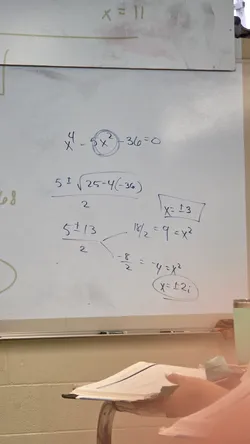 x = 11
x⁴ - 5x² - 36 = 0
5 ± √25-4(-36)
2
x = ±3
5 ± 13
2
18/2 = 9 = x²
-8/2 = -4 = x²
x = ±2i
68